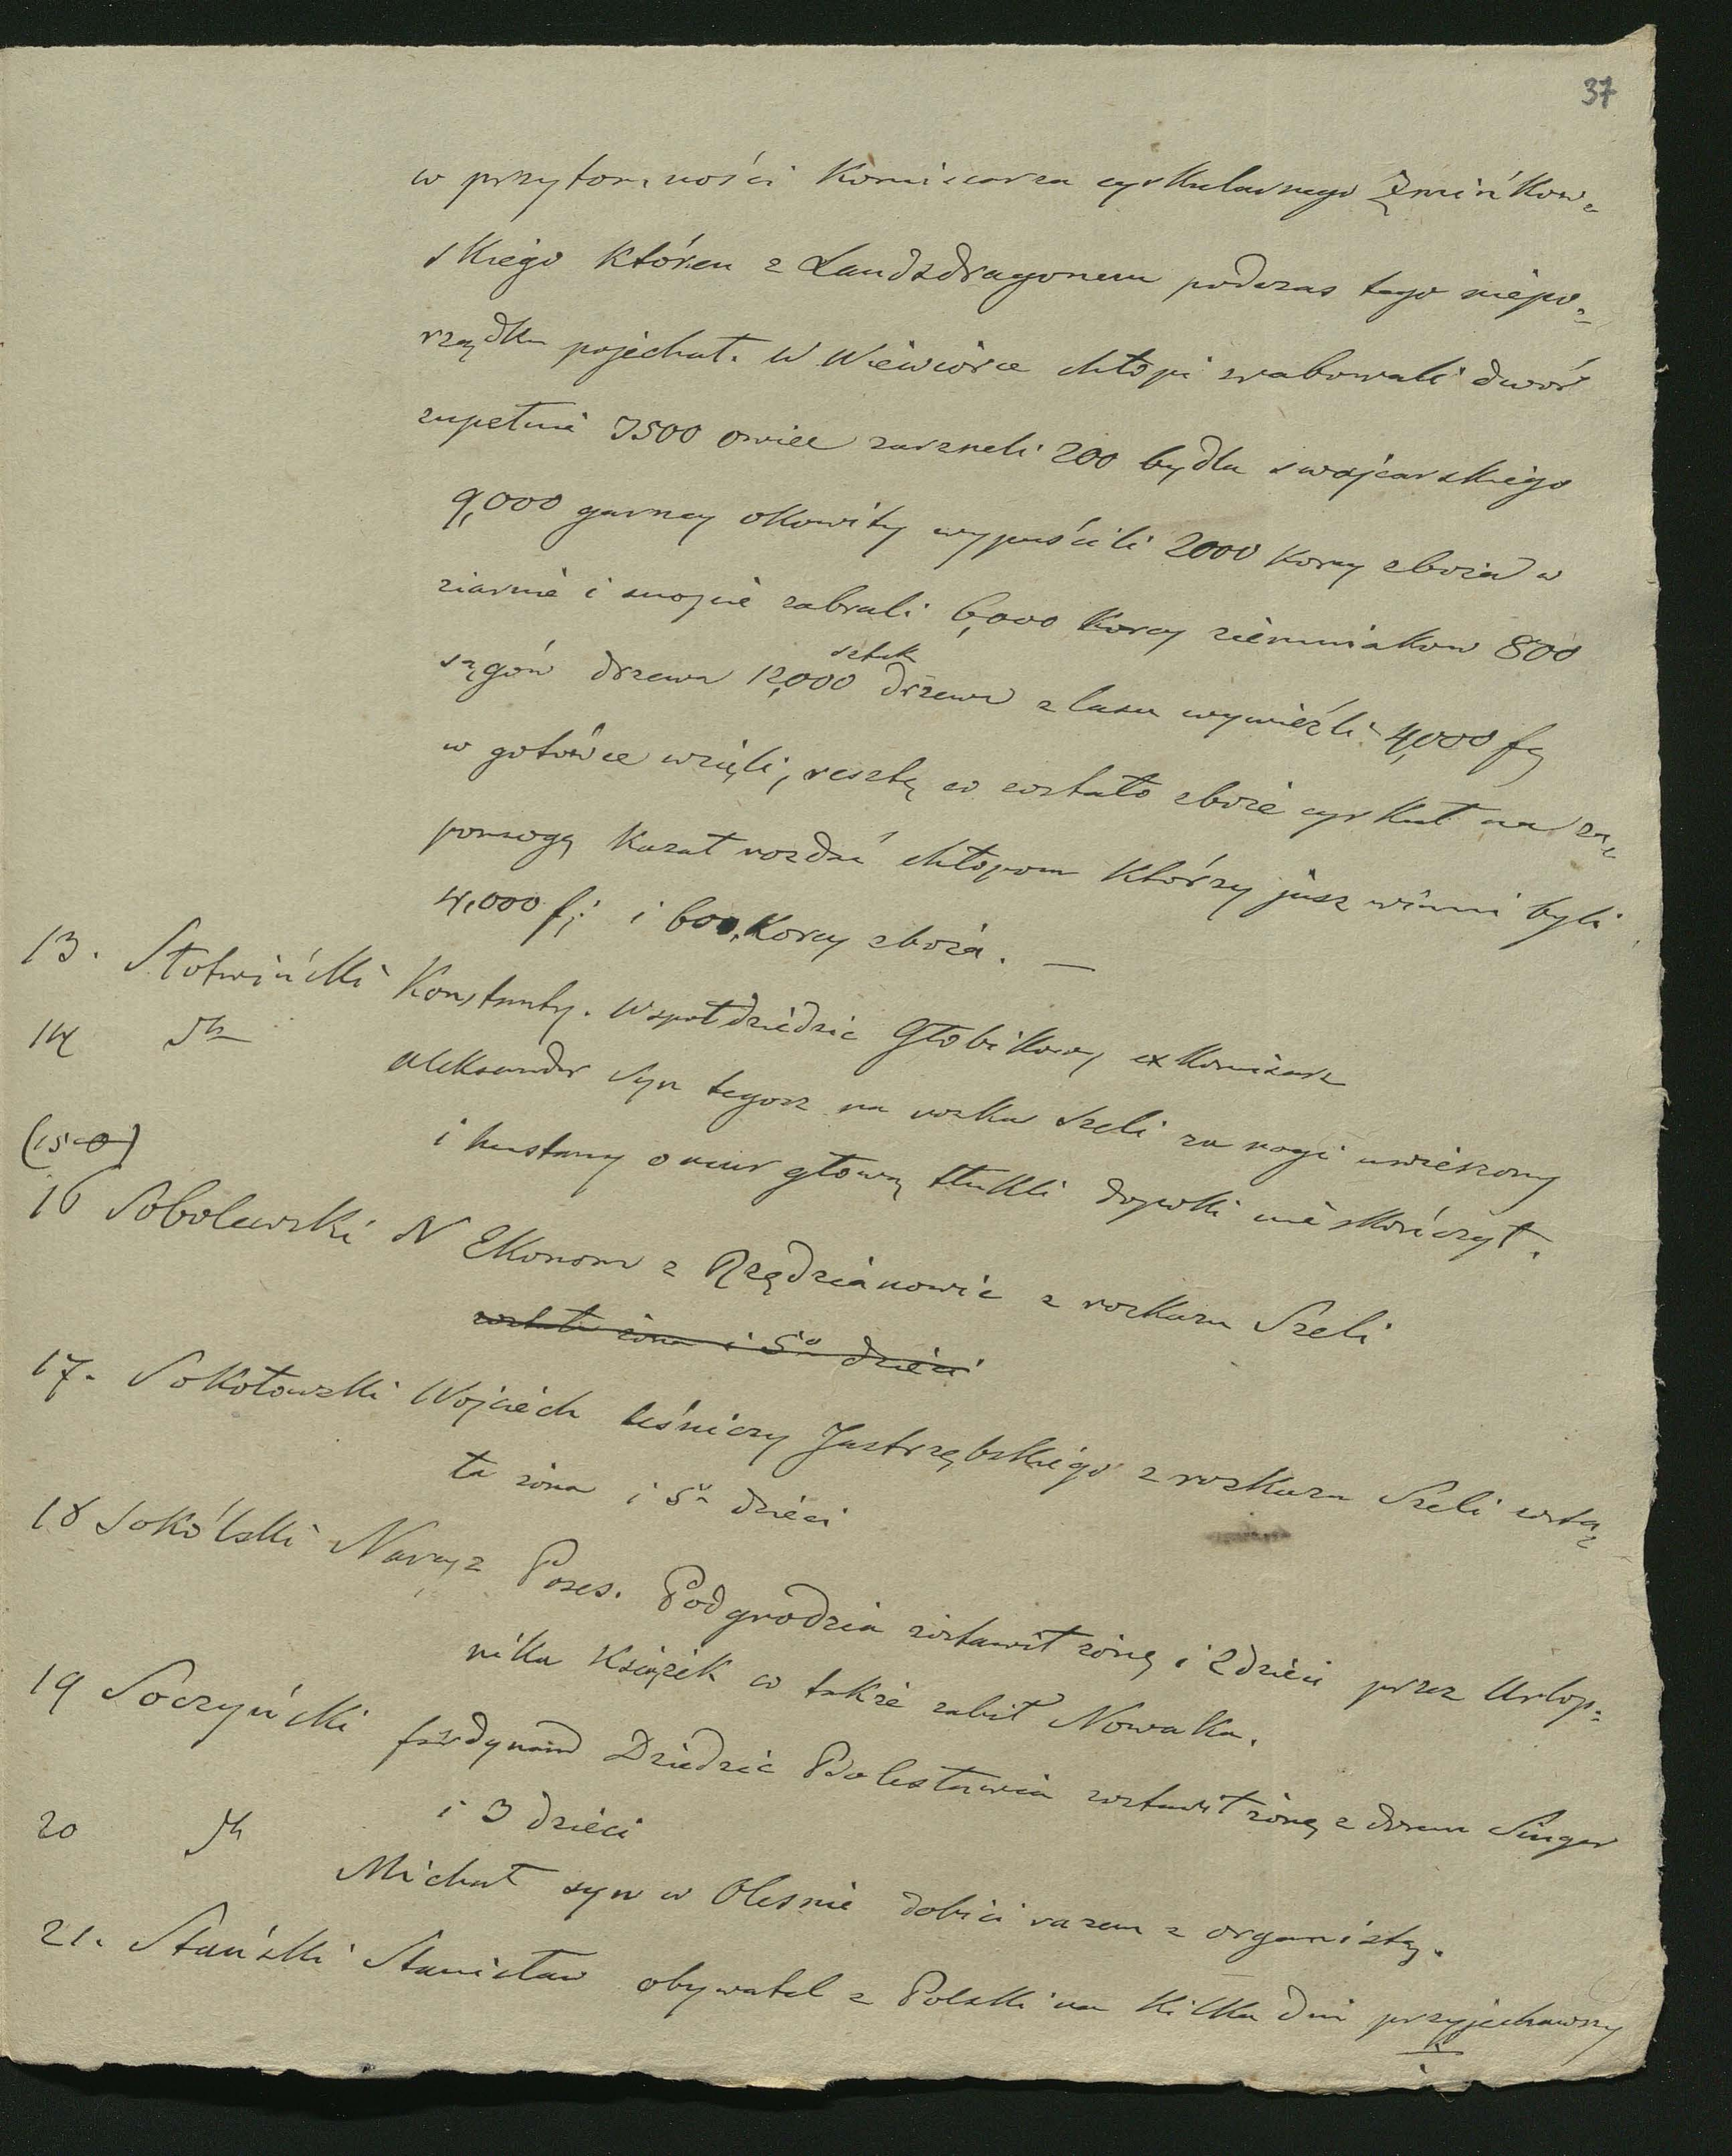 37
w przytomności Komisarza cyrkularnego Zmińkow=
skiego któren z Landsdragonem podczas tego niepo=
rządku pojechał. W Wiewiórce chłopi zrabowali dwór
zupełnie 3500 owiec zarzneli 200 bydła swajcarskiego
9,000 garncy okowity wypuścili 2000 korcy zboża w
ziarnie i snopie zabrali 6,000 korcy ziemniakow 800
sągów drzewa 12,000 sztuk drzewa z lasu wywieźli 4,000 f
w gotówce wzięli, resztę co zostało zboże cyrkuł na za=
pomogę kazał rozdać chłopom którzy jusz winni byli
4,000 f i 600 korcy zboża. —
13. Słotwiński Konstanty. Wspołdziedzic Głobikowy exkomisarz
14 dto Aleksander syn tegoż na rozkaz Szeli za nogi uwieszony
i hustany o mur głową tłukli dopoki nie skończył.
(15-0)
16 Sobolewski N Ekonom z Rzędzianowic z rozkazu Szeli
został żona i 5o dzieci
17. Sokołowski Wojciech leśniczy Jastrzębskiego z rozkazu Szeli zosta=
ła żona i 5o dzieci
18 Sokólski Narcyz Poses. Podgrodzia zostawił żonę i 2 dzieci przez Urlop=
nika Książek co także zabił Nowaka.
19 Soczyński ferdynand Dziedzic Bolesławia zostawił żonę z domu Singer
i 3 dzieci
20 dto Michał syn w Olesnie dobici razem z organistą.
21. Stański Stanisław obywatel z Polski na kilka dni przyjechawszy